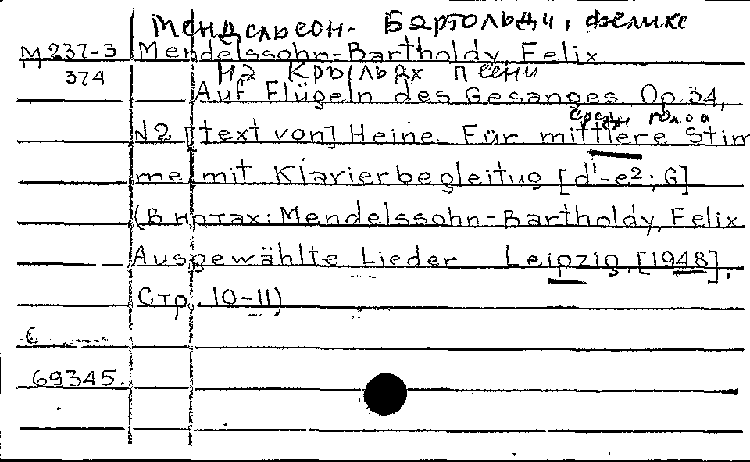 Мендельсон-Бартольди, Феликс
М 237-3 Mendelssohn-Bartholdy, Felix
374 На крыльях песни
Auf Flügeln des Gesanges. Op. 34,
средн. голоса
N2 [text von] Heine. Für mittlere Stim
me mit Klavierbegleitug [d'-e²; G]
(В нотах: Mendelssohn-Bartholdy, Felix
Ausgewählte Lieder Leipzig, [1948].
Стр. 10-11)
69345.